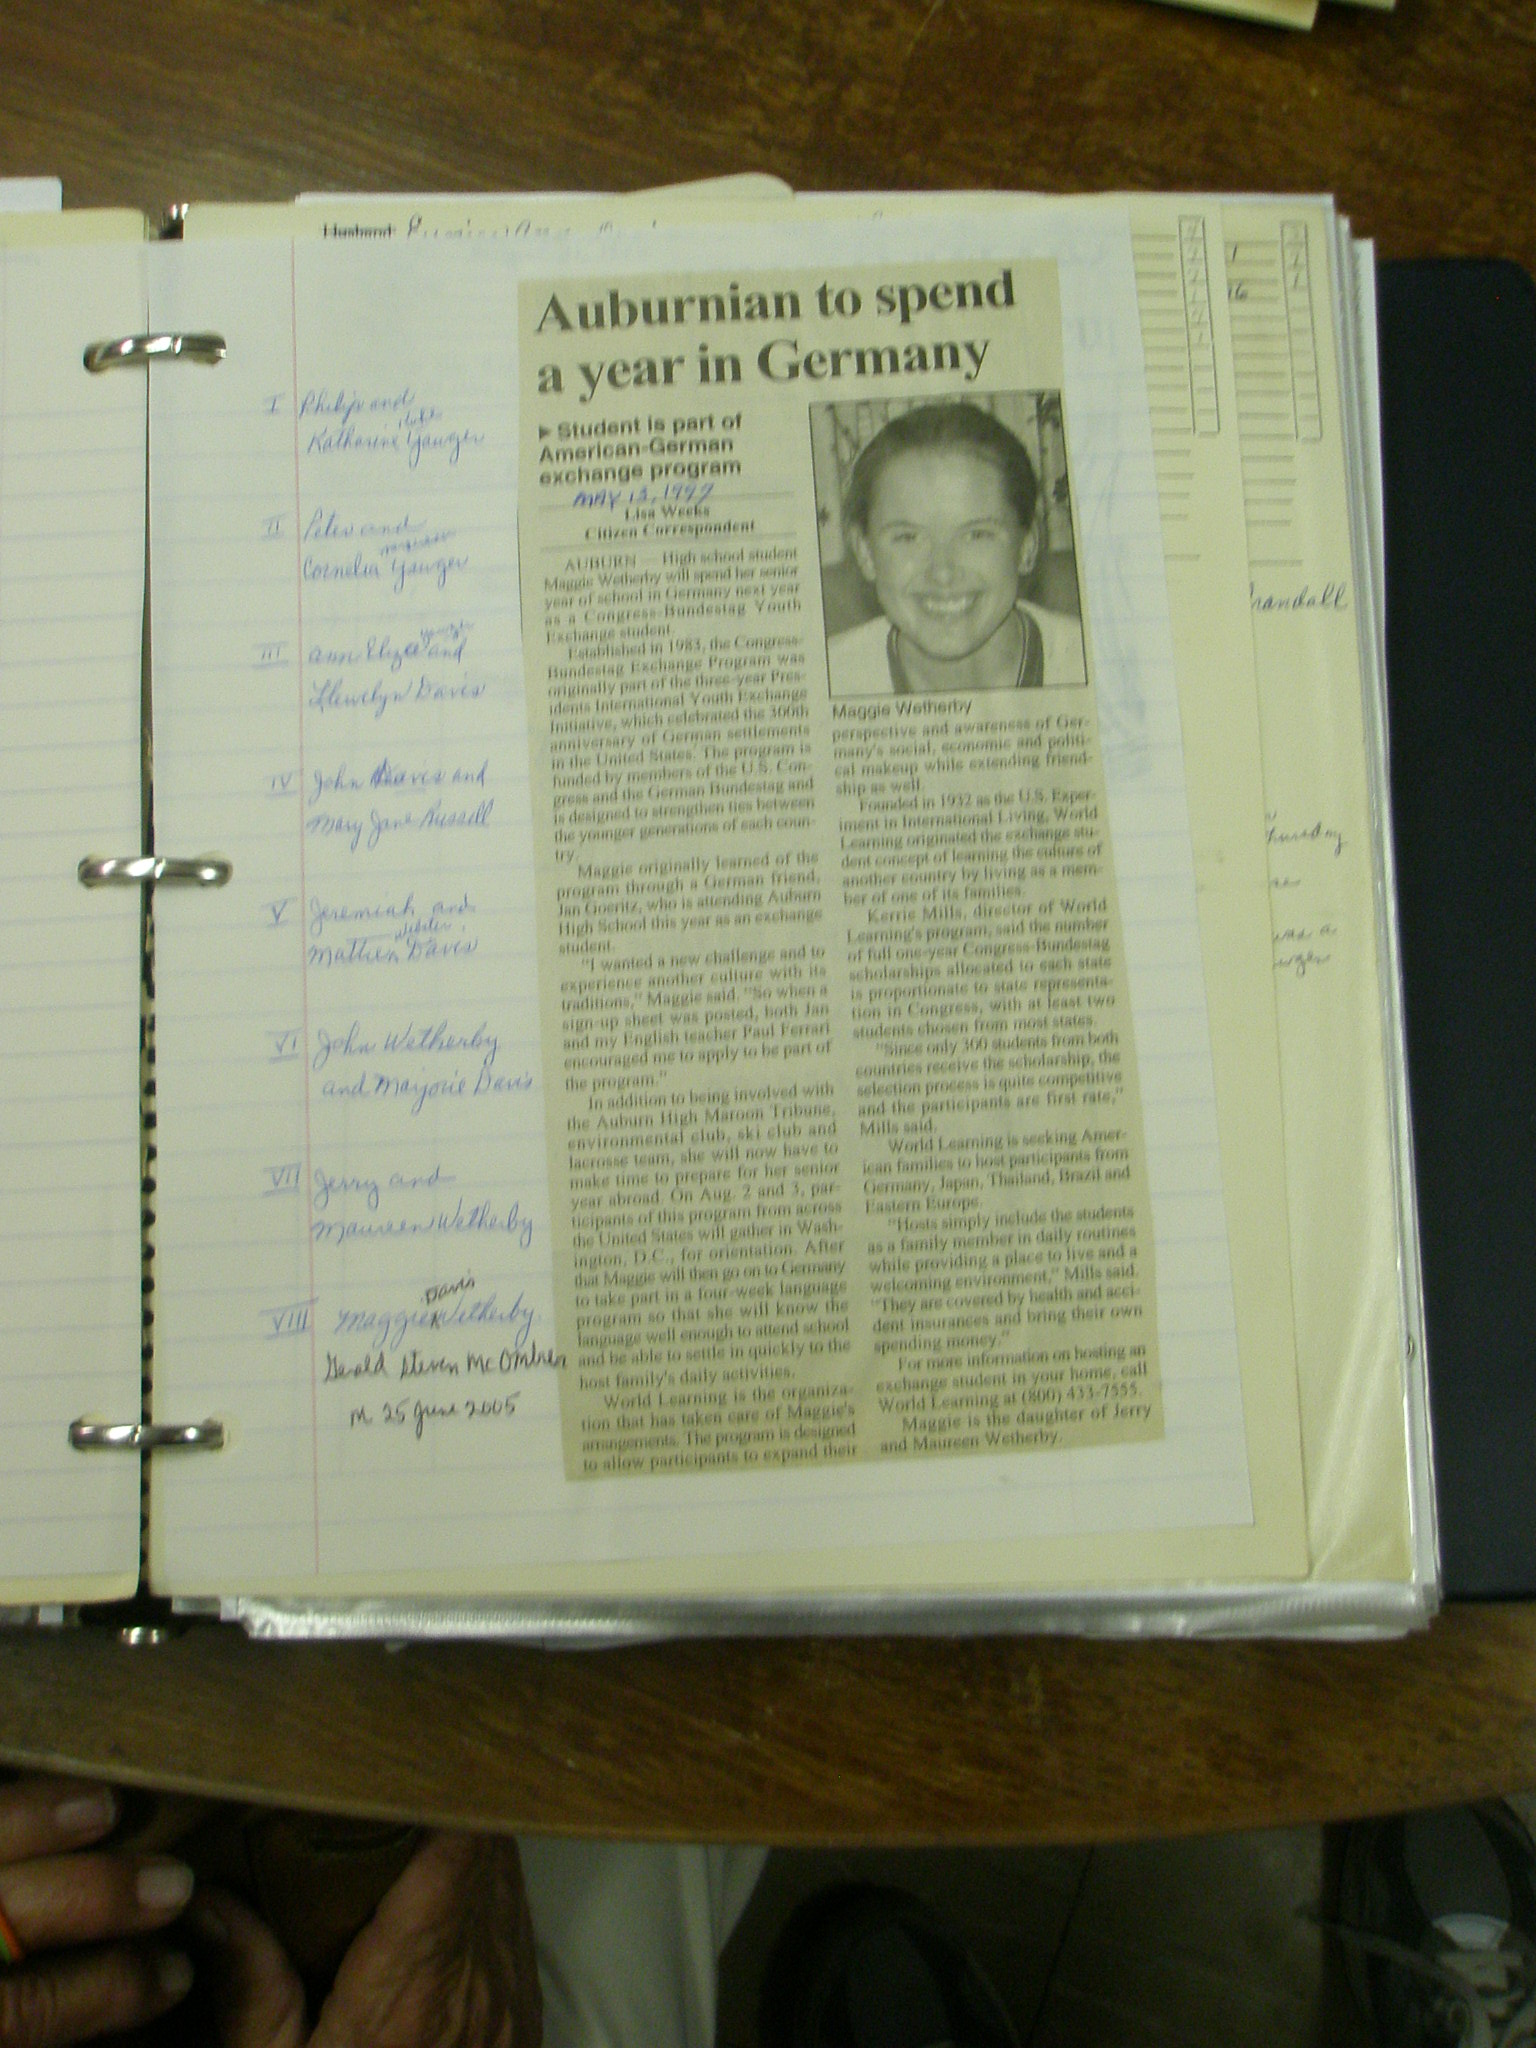 Husband
I Philip and
Katharine Yauger
II Peter and
Cornelia Yauger
III Ann Eliza and
Llewelyn Davis
IV John Davis and
Mary Jane Russell
V Jeremiah and
Webster
Mattie Davis
VI John Wetherby
and Marjorie Davis
VII Jerry and
Maureen Wetherby
Davis
VIII Maggie Wetherby
Gerald Steven McOmber
m 25 June 2005
Auburnian to spend
a year in Germany
▶ Student is part of
American-German
exchange program
MAY 13, 1997
Lisa Weeks
Citizen Correspondent
AUBURN — High school student
Maggie Wetherby will spend her senior
year of school in Germany next year
as a Congress-Bundestag Youth
Exchange student.
Established in 1983, the Congress-
Bundestag Exchange Program was
originally part of the three-year Pres-
idents International Youth Exchange
Initiative, which celebrated the 300th
anniversary of German settlements
in the United States. The program is
funded by members of the U.S. Con-
gress and the German Bundestag and
is designed to strengthen ties between
the younger generations of each coun-
try.
Maggie originally learned of the
program through a German friend,
Jan Goeritz, who is attending Auburn
High School this year as an exchange
student.
"I wanted a new challenge and to
experience another culture with its
traditions," Maggie said. "So when a
sign-up sheet was posted, both Jan
and my English teacher Paul Ferrari
encouraged me to apply to be part of
the program."
In addition to being involved with
the Auburn High Maroon Tribune,
environmental club, ski club and
lacrosse team, she will now have to
make time to prepare for her senior
year abroad. On Aug. 2 and 3, par-
ticipants of this program from across
the United States will gather in Wash-
ington, D.C., for orientation. After
that Maggie will then go on to Germany
to take part in a four-week language
program so that she will know the
language well enough to attend school
and be able to settle in quickly to the
host family's daily activities.
World Learning is the organiza-
tion that has taken care of Maggie's
arrangements. The program is designed
to allow participants to expand their
Maggie Wetherby
perspective and awareness of Ger-
many's social, economic and politi-
cal makeup while extending friend-
ship as well.
Founded in 1932 as the U.S. Exper-
iment in International Living, World
Learning originated the exchange stu-
dent concept of learning the culture of
another country by living as a mem-
ber of one of its families.
Kerrie Mills, director of World
Learning's program, said the number
of full one-year Congress-Bundestag
scholarships allocated to each state
is proportionate to state representa-
tion in Congress, with at least two
students chosen from most states.
"Since only 300 students from both
countries receive the scholarship, the
selection process is quite competitive
and the participants are first rate,"
Mills said.
World Learning is seeking Amer-
ican families to host participants from
Germany, Japan, Thailand, Brazil and
Eastern Europe.
"Hosts simply include the students
as a family member in daily routines
while providing a place to live and a
welcoming environment," Mills said.
"They are covered by health and acci-
dent insurances and bring their own
spending money."
For more information on hosting an
exchange student in your home, call
World Learning at (800) 433-7555.
Maggie is the daughter of Jerry
and Maureen Wetherby.
16
randall
hursday
was a